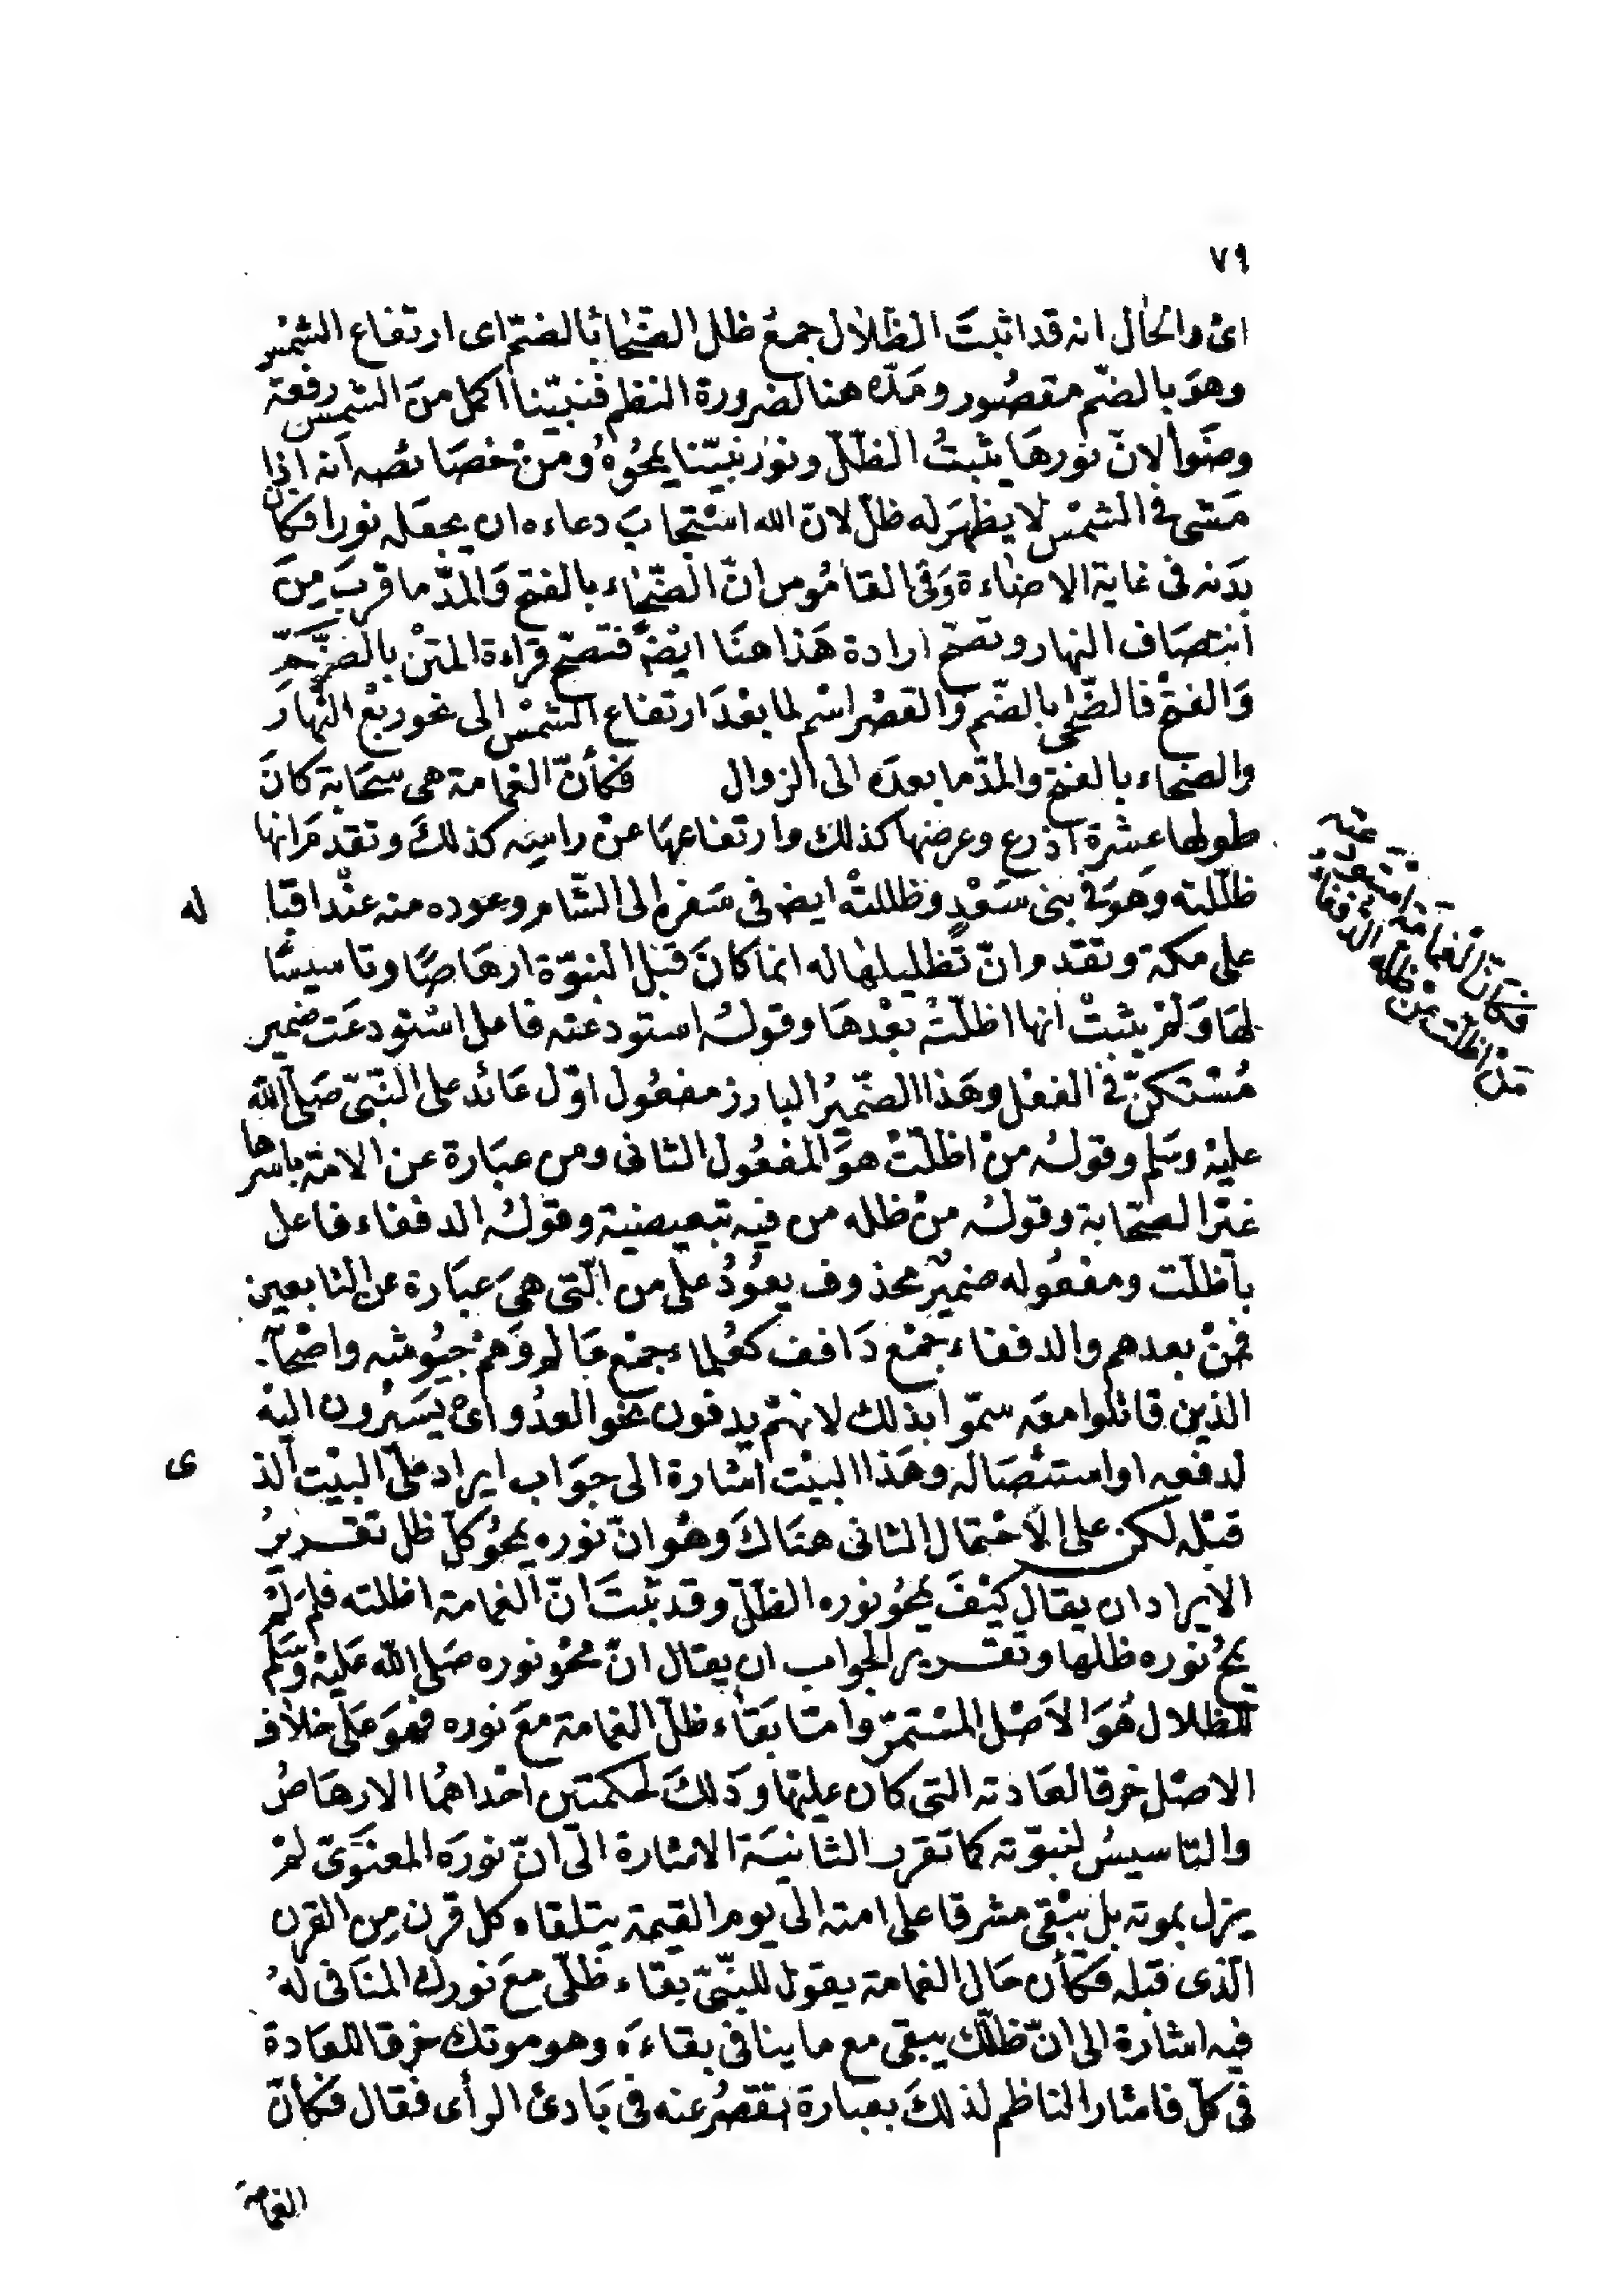 ٧٩
اى والحال انه قد اثبتَ الظّلال جمعُ ظل الضّحا بالضمّ اى ارتفاع الشمْس
وهوَ بالضّم مقصُور ومَدّه هنا لضرورة النظم فنبيّنا اكمل منَ الشمس رفعة
وضَوأ لانّ نورهَا يثبتُ الظّلّ ونور نبيّنا يمحُوهُ ومنْ خصَائصه اَنه اذا
مَشى فى الشمْس لا يظهَر له ظلّ لانّ الله اسْتجابَ دعاءه ان يجعله نورا فكان
بدَنه فى غاية الاضاءة وَفى القامُوس انّ الضّحاء بالفتح وَالمدّ ما قربَ مِنَ
انتصَاف النهار وتصحّ ارادة هَذا هنَا ايضًا فتصحّ قراءة المتنْ بالضّمّ
وَالفتحْ فالضّحٰى بالضّم وَالقصْر اسْم لما بعْدَ ارتفاع الشمْس الى نحو ربْع النّهارَ
والضحاء بالفتح والمدّ ما بعدَه الى الزوال فكأنّ الغمامة هى سحَابة كانَ
طولها عِشْرة اذرع وعرضها كذلك وارتفاعهَا عنْ راسِه كذلكَ وتقدمَ انها
ظلّلته وَهوَ فى بنى سَعْدٍ وظللتْه ايضا فى سَفره الى الشّام وعوده منه عنْد اقبا له
على مكة وتقدم انّ تظليلها له انما كانَ قبْل النبوّة ارهَاصًا وتاسيسًا
لهَا وَلمْ يثبتْ انها اظلّتْه بعْدهَا وقولهُ استودعته فاعل اسْتودعَت ضمير
مُسْتكنّ فى الفعْل وهَذا الضّميرُ البارز مفعُول اوّل عَائد على النّبىّ صَلى اللّه
عليْه وسَلم وقولهُ منْ اظلّتْ هوَ المفعُول الثانى ومن عبَارة عن الامة باسْرها
غيْر الصّحَابة وقولهُ منْ ظله من فيه تبعيضية وقولهُ الدففاء فاعل
باظلّت ومفعُوله ضميرٌ محذوف يعُودُ على من الّتى هىَ عبَارة عن التابعين
فمنْ بعدهم والدففاء جمْع دَافف كعُلماء جمْع عَالم وَهمْ جيُوشه واصْحابه
الذين قاتلوا معَه سمّوا بذلك لانهمْ يدفون نحو العدُو اىْ يَسيْرُون اليْه
لدفعه او استئصَاله وهَذا البيْت اشارة الى جوَاب ايراد علَى البيْت الذ ى
قبْله لكن على الاحْتمال الثانى هنَاكَ وهُو انّ نوره يمحُو كلّ ظل تقريرُ
الايراد ان يقال كيْفَ يمحُو نوره الظلّ وقد ثبتَ انّ الغمامة اظلته فلم لمْ
يمحُ نوره ظلها وتقرير الجواب ان يقال انّ محْو نوره صَلى اللّه عَليْه وسَلّم
للظلال هُوَ الاَصْل المسْتمرّ وامّا بقاء ظلّ الغمامة معَ نوره فهوَ عَلى خلاف
الاصْل خرقا لعَادته التى كان عليْها وَذلكَ لحكمتين احْداهمُا الارهَاصُ
والتاسيسُ لنبوّته كما تقرر الثانيَة الاشارة الى انّ نورَه المعنَوىّ لمْ
يزل بموته بل يبْقى مشرقا على امته الى يوم القيمة يتلقاه كل قرن مِن القرن
الّذى قبله فكأن حَال الغمامة يقول للنّبىّ بقاء ظلّى معَ نورك المنَافى لهُ
فيه اشارة الى انّ ظلّك يبقى مع ما ينافى بقاءَه وهو موتك خرقا للعَادة
فى كلّ فاشار الناظم لذلكَ بعبارة تقصُر عنه فى بَادئ الرأى فقال فكأنّ
الغمامة
فكأنّ الغمامة استودعته
منْ اظلّت منْ ظلّه الدففاء